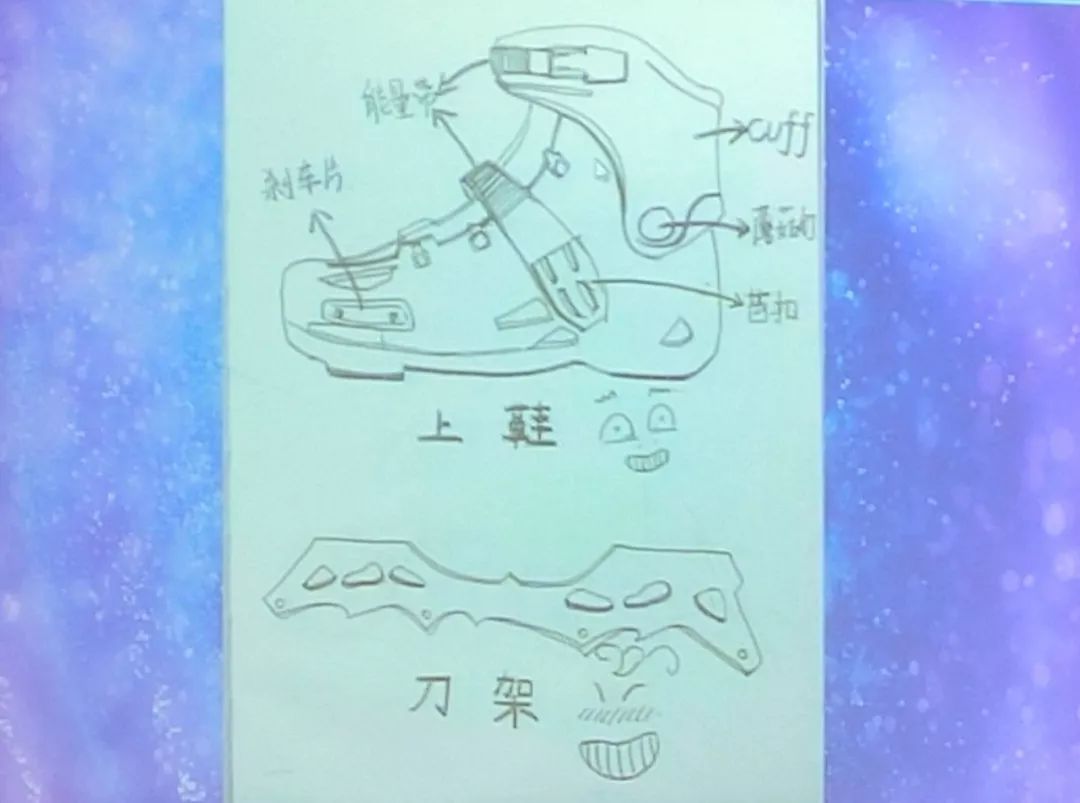 能量带
cuff
刹车片
蘑菇钉
苜扣
上 鞋
刀 架